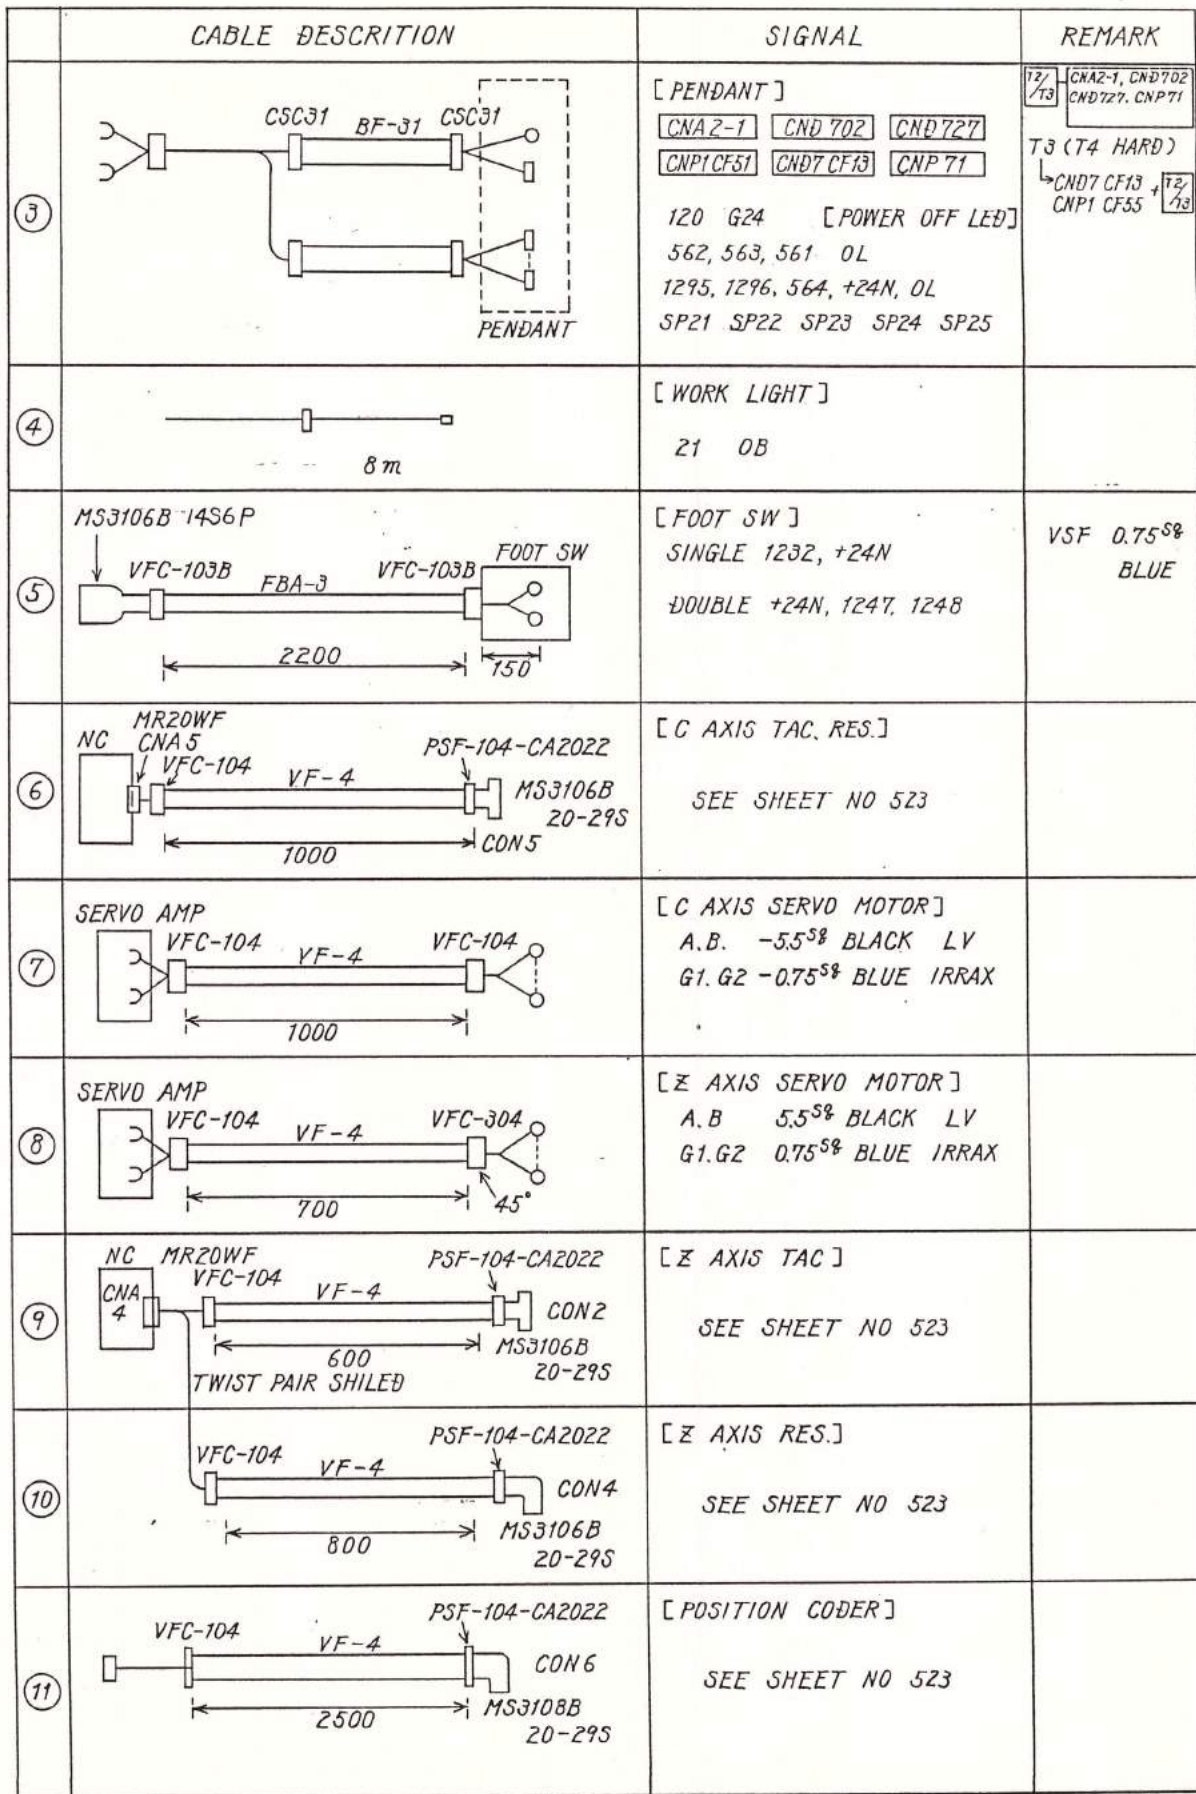 CABLE DESCRITION
SIGNAL
REMARK
③
CSC31
BF-31
CSC31
PENDANT
[PENDANT]
CNA2-1 CND702 CND727
CNP1CF51 CND7CF13 CNP71
120 G24 [POWER OFF LED]
562, 563, 561 OL
1295, 1296, 564, +24N, OL
SP21 SP22 SP23 SP24 SP25
T2/T3
CNA2-1, CND702
CND727. CNP71
T3 (T4 HARD)
CND7 CF13 + T2/T3
CNP1 CF55
④
8m
[WORK LIGHT]
21 OB
⑤
MS3106B-14S6P
VFC-103B
FBA-3
VFC-103B
FOOT SW
2200
150
[FOOT SW]
SINGLE 1232, +24N
DOUBLE +24N, 1247, 1248
VSF 0.75Sq
BLUE
⑥
NC
MR20WF
CNA5
VFC-104
VF-4
PSF-104-CA2022
MS3106B
20-29S
CON5
1000
[C AXIS TAC. RES.]
SEE SHEET NO 523
⑦
SERVO AMP
VFC-104
VF-4
VFC-104
1000
[C AXIS SERVO MOTOR]
A.B. -5.5Sq BLACK LV
G1.G2 -0.75Sq BLUE IRRAX
⑧
SERVO AMP
VFC-104
VF-4
VFC-304
700
45°
[Z AXIS SERVO MOTOR]
A.B 5.5Sq BLACK LV
G1.G2 0.75Sq BLUE IRRAX
⑨
NC
MR20WF
CNA
4
VFC-104
VF-4
PSF-104-CA2022
CON2
MS3106B
20-29S
600
TWIST PAIR SHILED
[Z AXIS TAC]
SEE SHEET NO 523
⑩
VFC-104
VF-4
PSF-104-CA2022
CON4
MS3106B
20-29S
800
[Z AXIS RES.]
SEE SHEET NO 523
⑪
VFC-104
VF-4
PSF-104-CA2022
CON6
MS3108B
20-29S
2500
[POSITION CODER]
SEE SHEET NO 523